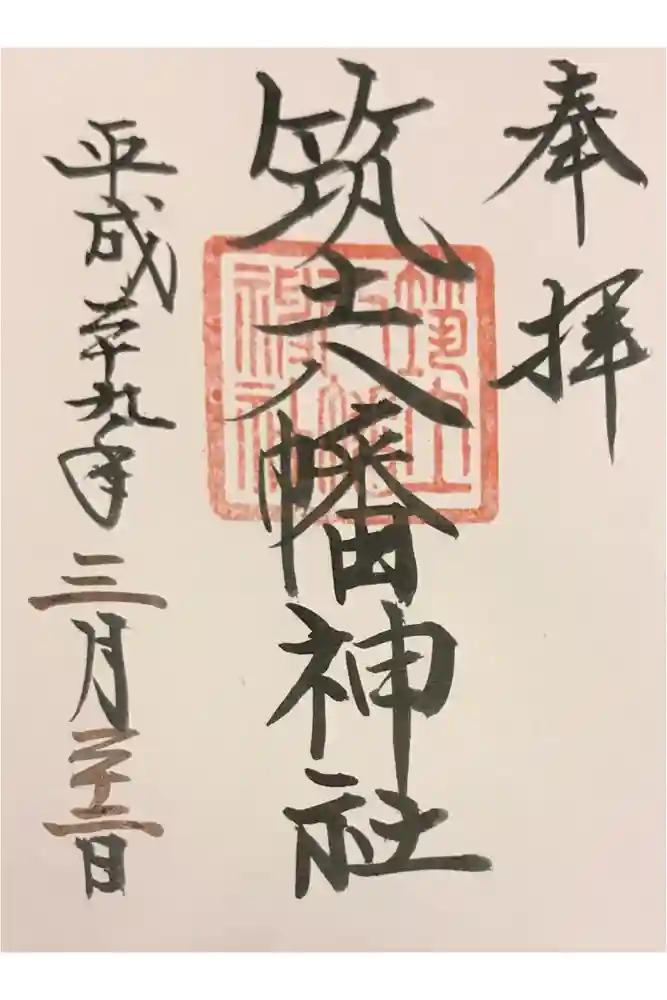 奉拝
筑土八幡神社
筑土
八幡
神社
平成二十九年三月二十二日